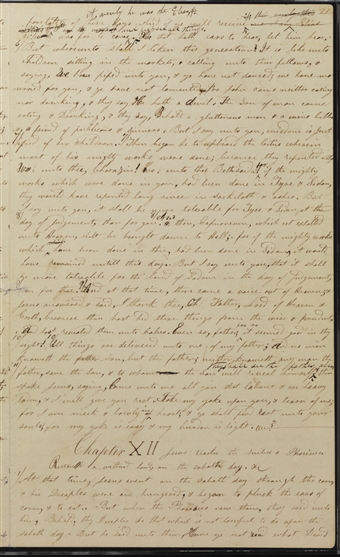 But whereunto shall I liken this generation? It is like unto
children siting in the markets, & calling unto their fellows, &
saying, We have piped unto you, & ye have not danced; we have mo-
urned for you, & ye have not lamented. For John came neither eating
nor drinking, & they say, He hath a devil. The Son of man came
eating & drinking, & they say, Behold a gluttonous man & a wine bibber
a friend of publicans & sinners. But I say unto you, wisdom is just-
ified of her children. Then began he to upbraid the cities wherein
most of his mighty works were done, because they repented not.
Wo unto thee, Chorazin! Wo unto thee Bethsaida! for if the mighty
works which were done in you, had been done in Tyre & Sidon,
they would have repented long since in sackcloth & ashes. But
I say unto you, it shall be more tolerable for Tyre & Sidon at the
day of judgment, than for you. And thou, Capernaum, which art exalted
unto Heaven, shalt be brought down to Hell; for if the mighty works
which have been done in thee, had been done in Sodom, it would
have remained untill this day. But I say unto you, that it shall
be more tolerable for the land of Sodom in the day of judgment,
than for thee. And at that time, there came a voice out of heaven, &
Jesus answered & said, I thank thee, O Father, Lord of heaven &
Earth, because thou hast hid these things from the wise & prudent,
And hast revealed them unto babes. Even so, father, for so it seemed good in thy
sight. All things are delivered unto me, of my father; And no man
knoweth the son, but the father; neither knoweth any man the
father, save the Son, & to whom the son will reveal
spake Jesus, saying, Come unto me all ye that labour & are heavy
laden, & I will give you rest. Take my yoke upon you, & learn of me;
for I am meek & lowly in heart, & ye shall find rest unto your
souls, for my yoke is easy & my burden is light.
Chapter XII Jesus
on the sabath day. &c
At that time, Jesus went on the sabath day through the corn
& his Disciples were an hungered, & began to pluck the ears of
corn, & to eat. But when the Pharisees saw them, they said unto
him, Behold, thy Disciples do that which is not lawful to do upon the
sabath day. But he said unto them, Have ye not read what David